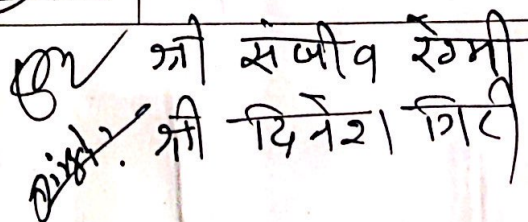 श्री संजीव रेग्मी
श्री दिनेश गिरी